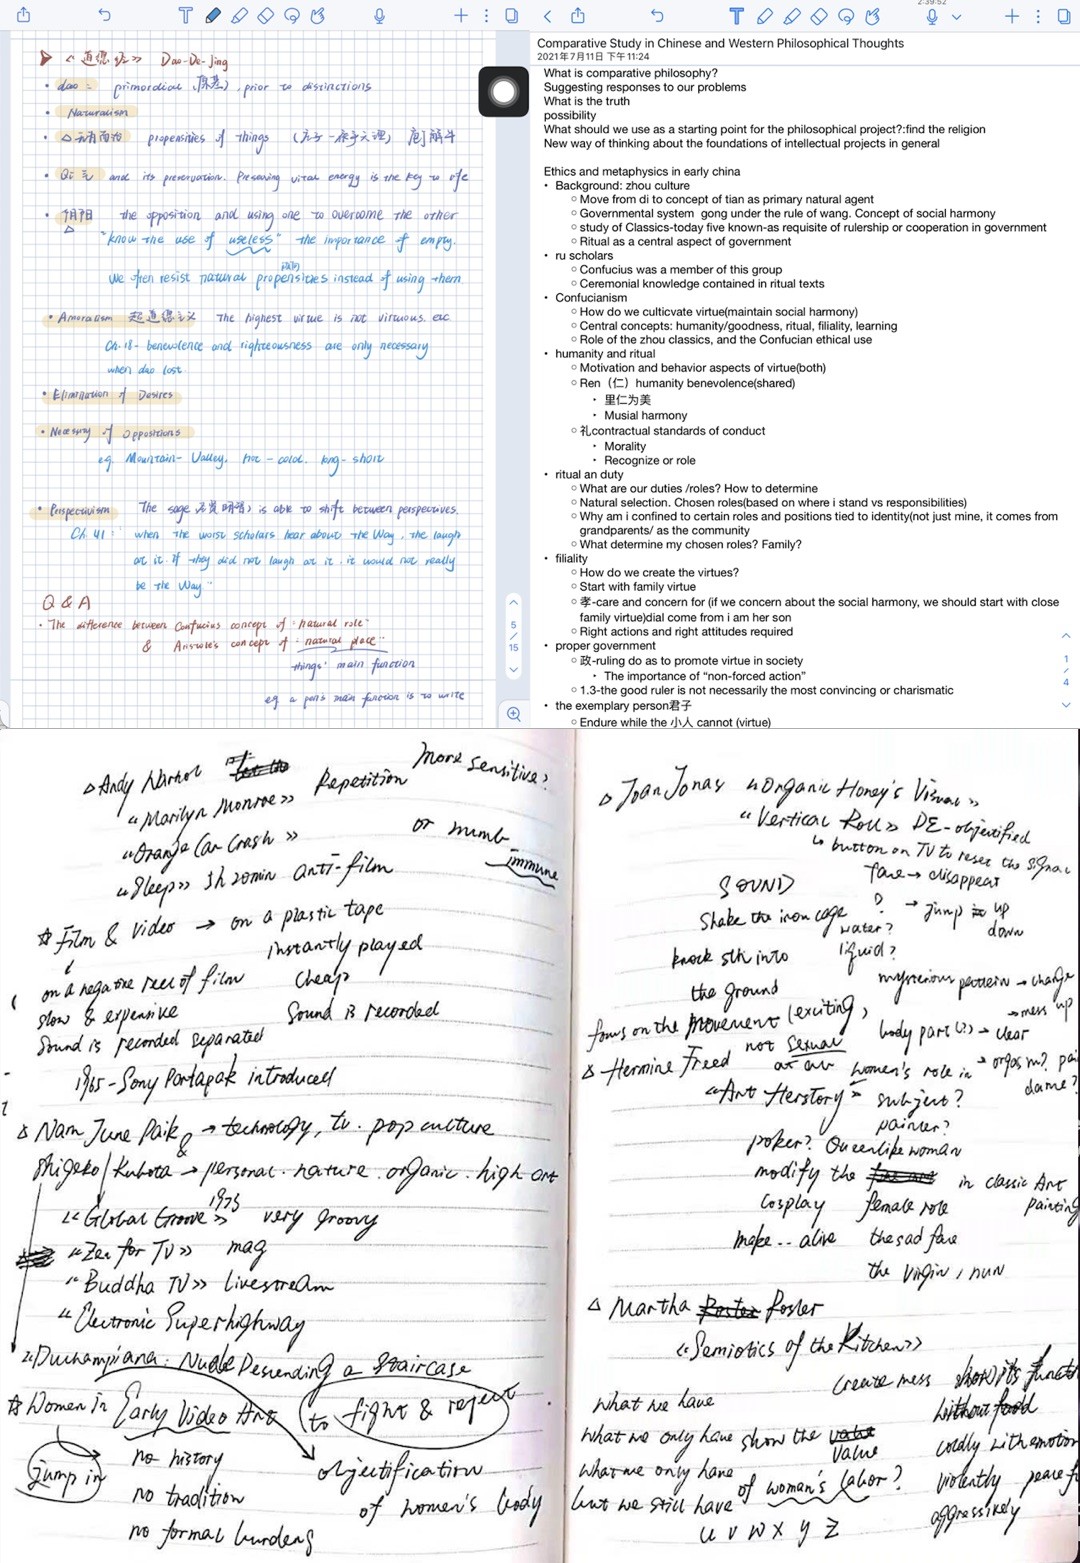 《道德经》 Dao-De-jing
• dao: primordial (原基), prior to distinctions
• Naturalism
• propensities of things
• Qi 气 and its preservation. Preserving vital energy is the key to life
• 阴阳 the opposition and using one to overcome the other
"know the use of useless" the importance of empty.
We often resist natural propensities instead of using them
• Amoralism 超道德主义 The highest virtue is not virtuous. etc
Ch. 18- benevolence and righteousness are only necessary
when dao lost.
• Elimination of Desires
• Necessity of oppositions
eg. Mountain- Valley. hot - cold. long- short
• Perspectivism The sage is able to shift between perspectives.
Ch 41: when the worst scholars hear about the Way, the laugh
at it. If they did not laugh at it, it would not really
be the Way"
Q & A
• The difference between Confucius concept of "natural role"
& Aristotle's concept of "natural place"
things' main function
eg a pen's main function is to write
5
/
15
2:39:52
Comparative Study in Chinese and Western Philosophical Thoughts
2021年7月11日 下午11:24
What is comparative philosophy?
Suggesting responses to our problems
What is the truth
possibility
What should we use as a starting point for the philosophical project?:find the religion
New way of thinking about the foundations of intellectual projects in general
Ethics and metaphysics in early china
• Background: zhou culture
○ Move from di to concept of tian as primary natural agent
○ Governmental system gong under the rule of wang. Concept of social harmony
○ study of Classics-today five known-as requisite of rulership or cooperation in government
○ Ritual as a central aspect of government
• ru scholars
○ Confucius was a member of this group
○ Ceremonial knowledge contained in ritual texts
• Confucianism
○ How do we culticvate virtue(maintain social harmony)
○ Central concepts: humanity/goodness, ritual, filiality, learning
○ Role of the zhou classics, and the Confucian ethical use
• humanity and ritual
○ Motivation and behavior aspects of virtue(both)
○ Ren（仁）humanity benevolence(shared)
• 里仁为美
• Musial harmony
○ 礼contractual standards of conduct
• Morality
• Recognize or role
• ritual an duty
○ What are our duties /roles? How to determine
○ Natural selection. Chosen roles(based on where i stand vs responsibilities)
○ Why am i confined to certain roles and positions tied to identity(not just mine, it comes from
grandparents/ as the community
○ What determine my chosen roles? Family?
• filiality
○ How do we create the virtues?
○ Start with family virtue
○ 孝-care and concern for (if we concern about the social harmony, we should start with close
family virtue)dial come from i am her son
○ Right actions and right attitudes required
• proper government
○ 政-ruling do as to promote virtue in society
• The importance of "non-forced action"
○ 1.3-the good ruler is not necessarily the most convincing or charismatic
• the exemplary person君子
○ Endure while the 小人 cannot (virtue)
1
/
4
△ Andy Warhol Repetition More sensitive?
"Marilyn Monroe»
"Orange Car Crash» or numb
immune
"Sleep» 5h 20min anti-film
☆ Film & Video → on a plastic tape
instantly played
on a negative reel of film cheap
slow & expensive Sound is recorded
Sound is recorded separated
1965-Sony Portapak introduced
△ Nam June Paik → technology, tv. pop culture
&
Shigeko Kubota → personal. nature. organic. high art
"Global Groove» 1973 very groovy
"Zen for TV» mag
"Buddha TV» livestream
"Electronic Superhighway
"Duchampiana: Nude Descending a Staircase
☆ Women in Early Video Art (to fight & reject
jump in no history objectification
no tradition of women's body
no formal burdens
△ Joan Jonas "Organic Honey's Visual»
"Vertical Roll» DE-objectified
↳ button on TV to reset the signal
face → disappear
SOUND
Shake the iron cage ? → jump up
water? down
knock sth into liquid?
the ground mysterious pattern → change
→ mess up
focus on the movement (exciting, body part (?) → clear
not sexual
at all → orgasm? pain
△ Hermine Freed women's role in dame?
"Art Herstory» subject?
painter?
poker? Queenlike woman
modify the in classic Art
cosplay female role painting
make.. alive the sad face
the virgin, nun
△ Martha Rosler
«Semiotics of the Kitchen»
create mess
What we have without food
What we only have show the value coldly with emotion
What we only have of woman's labor? violently peaceful
but we still have aggressively
U V W X Y Z